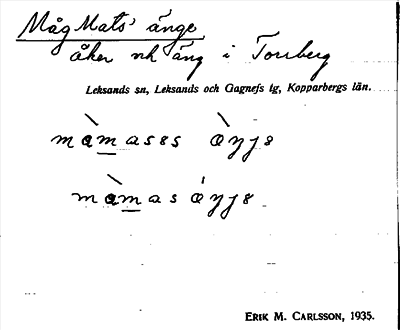 Måg Mats' änge
åker och äng i Torrberg
Leksands sn, Leksands och Gagnefs tg, Kopparbergs län.
màmases
màmas
ERIK M. CARLSSON, 1935.